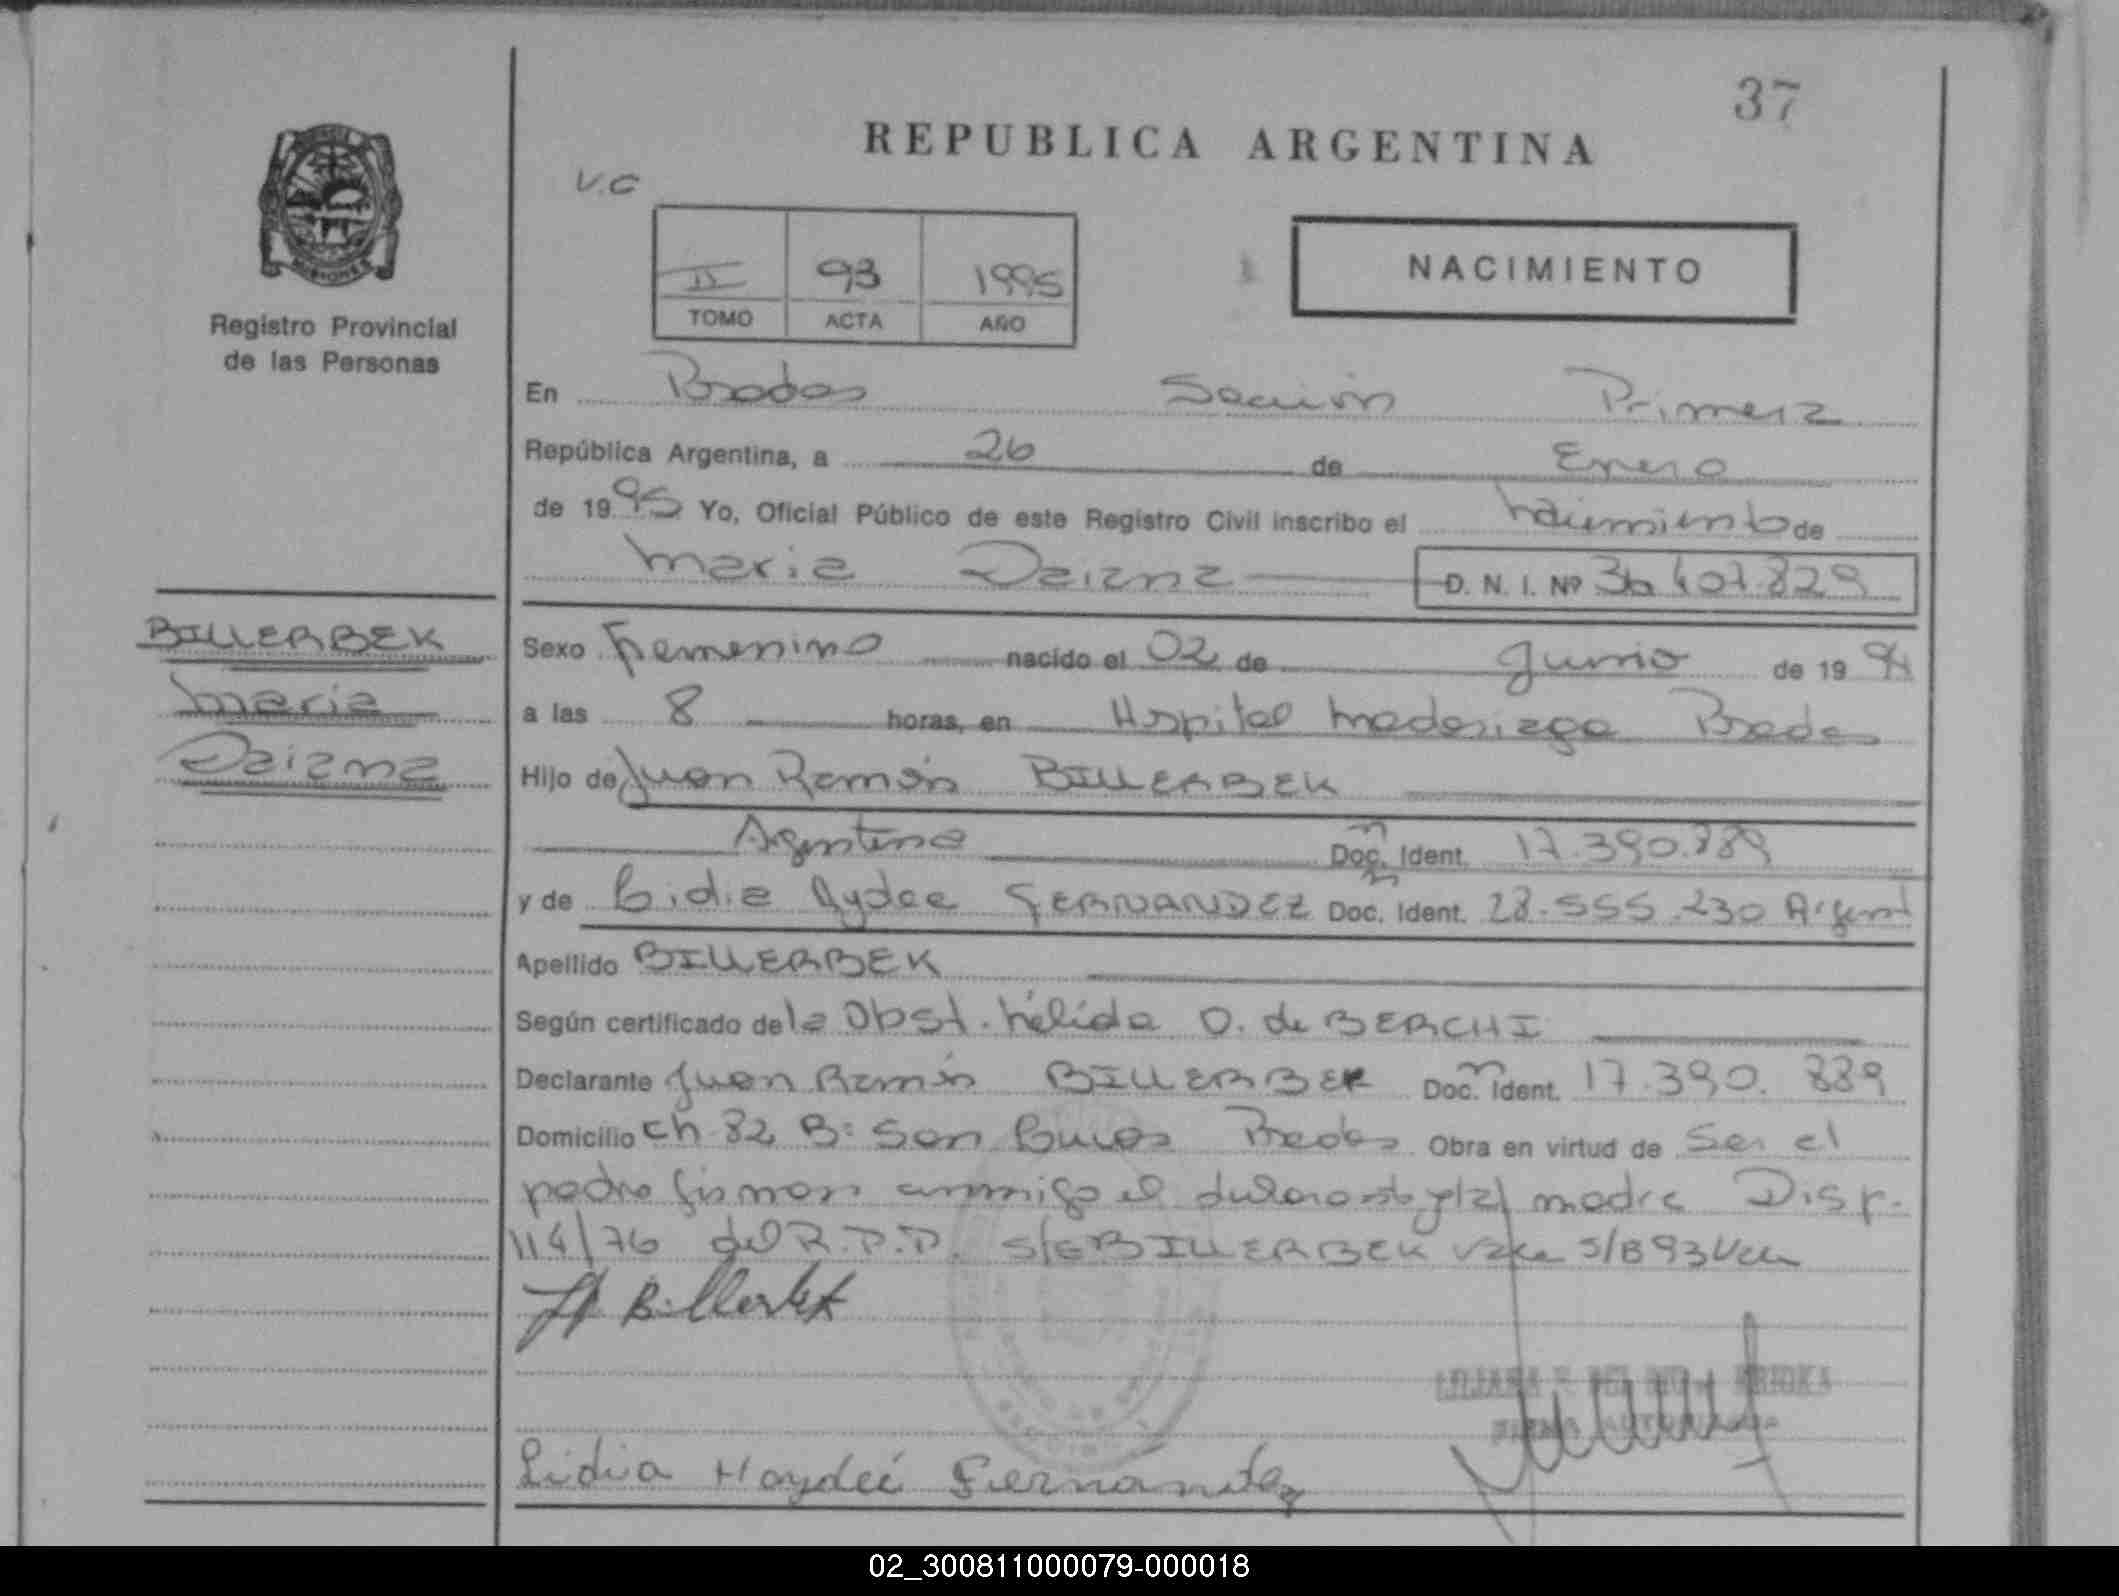 37
REPUBLICA ARGENTINA
V.C
II 93 1995
TOMO ACTA AÑO
NACIMIENTO
MISIONES
Registro Provincial
de las Personas
En Posadas Sección Primera
República Argentina, a 26 de Enero
de 1995 Yo, Oficial Público de este Registro Civil inscribo el Nacimiento de
Maria Daiana D. N. I. Nº 36.407.829
BILLERBEK
Maria
Daiana
Sexo Femenino nacido el 02 de Junio de 1994
a las 8 horas, en Hospital Madariaga Posadas
Hijo de Juan Ramón BILLERBEK
Argentino Doc. Ident. 17.390.889
y de Lidia Aydee FERNANDEZ Doc. Ident. 28.555.230 Argent
Apellido BILLERBEK
Según certificado de la Obst. Nélida O. de BERCHI
Declarante Juan Ramón BILLERBEK Doc. Ident. 17.390.889
Domicilio Ch. 82 B: San Posadas Obra en virtud de Ser el
padre firman conmigo el y la madre Disp.
114/76 del R.P.P. BILLERBEK Vale
Billerbek
Lidia Haydeé Fernandez
02_300811000079-000018